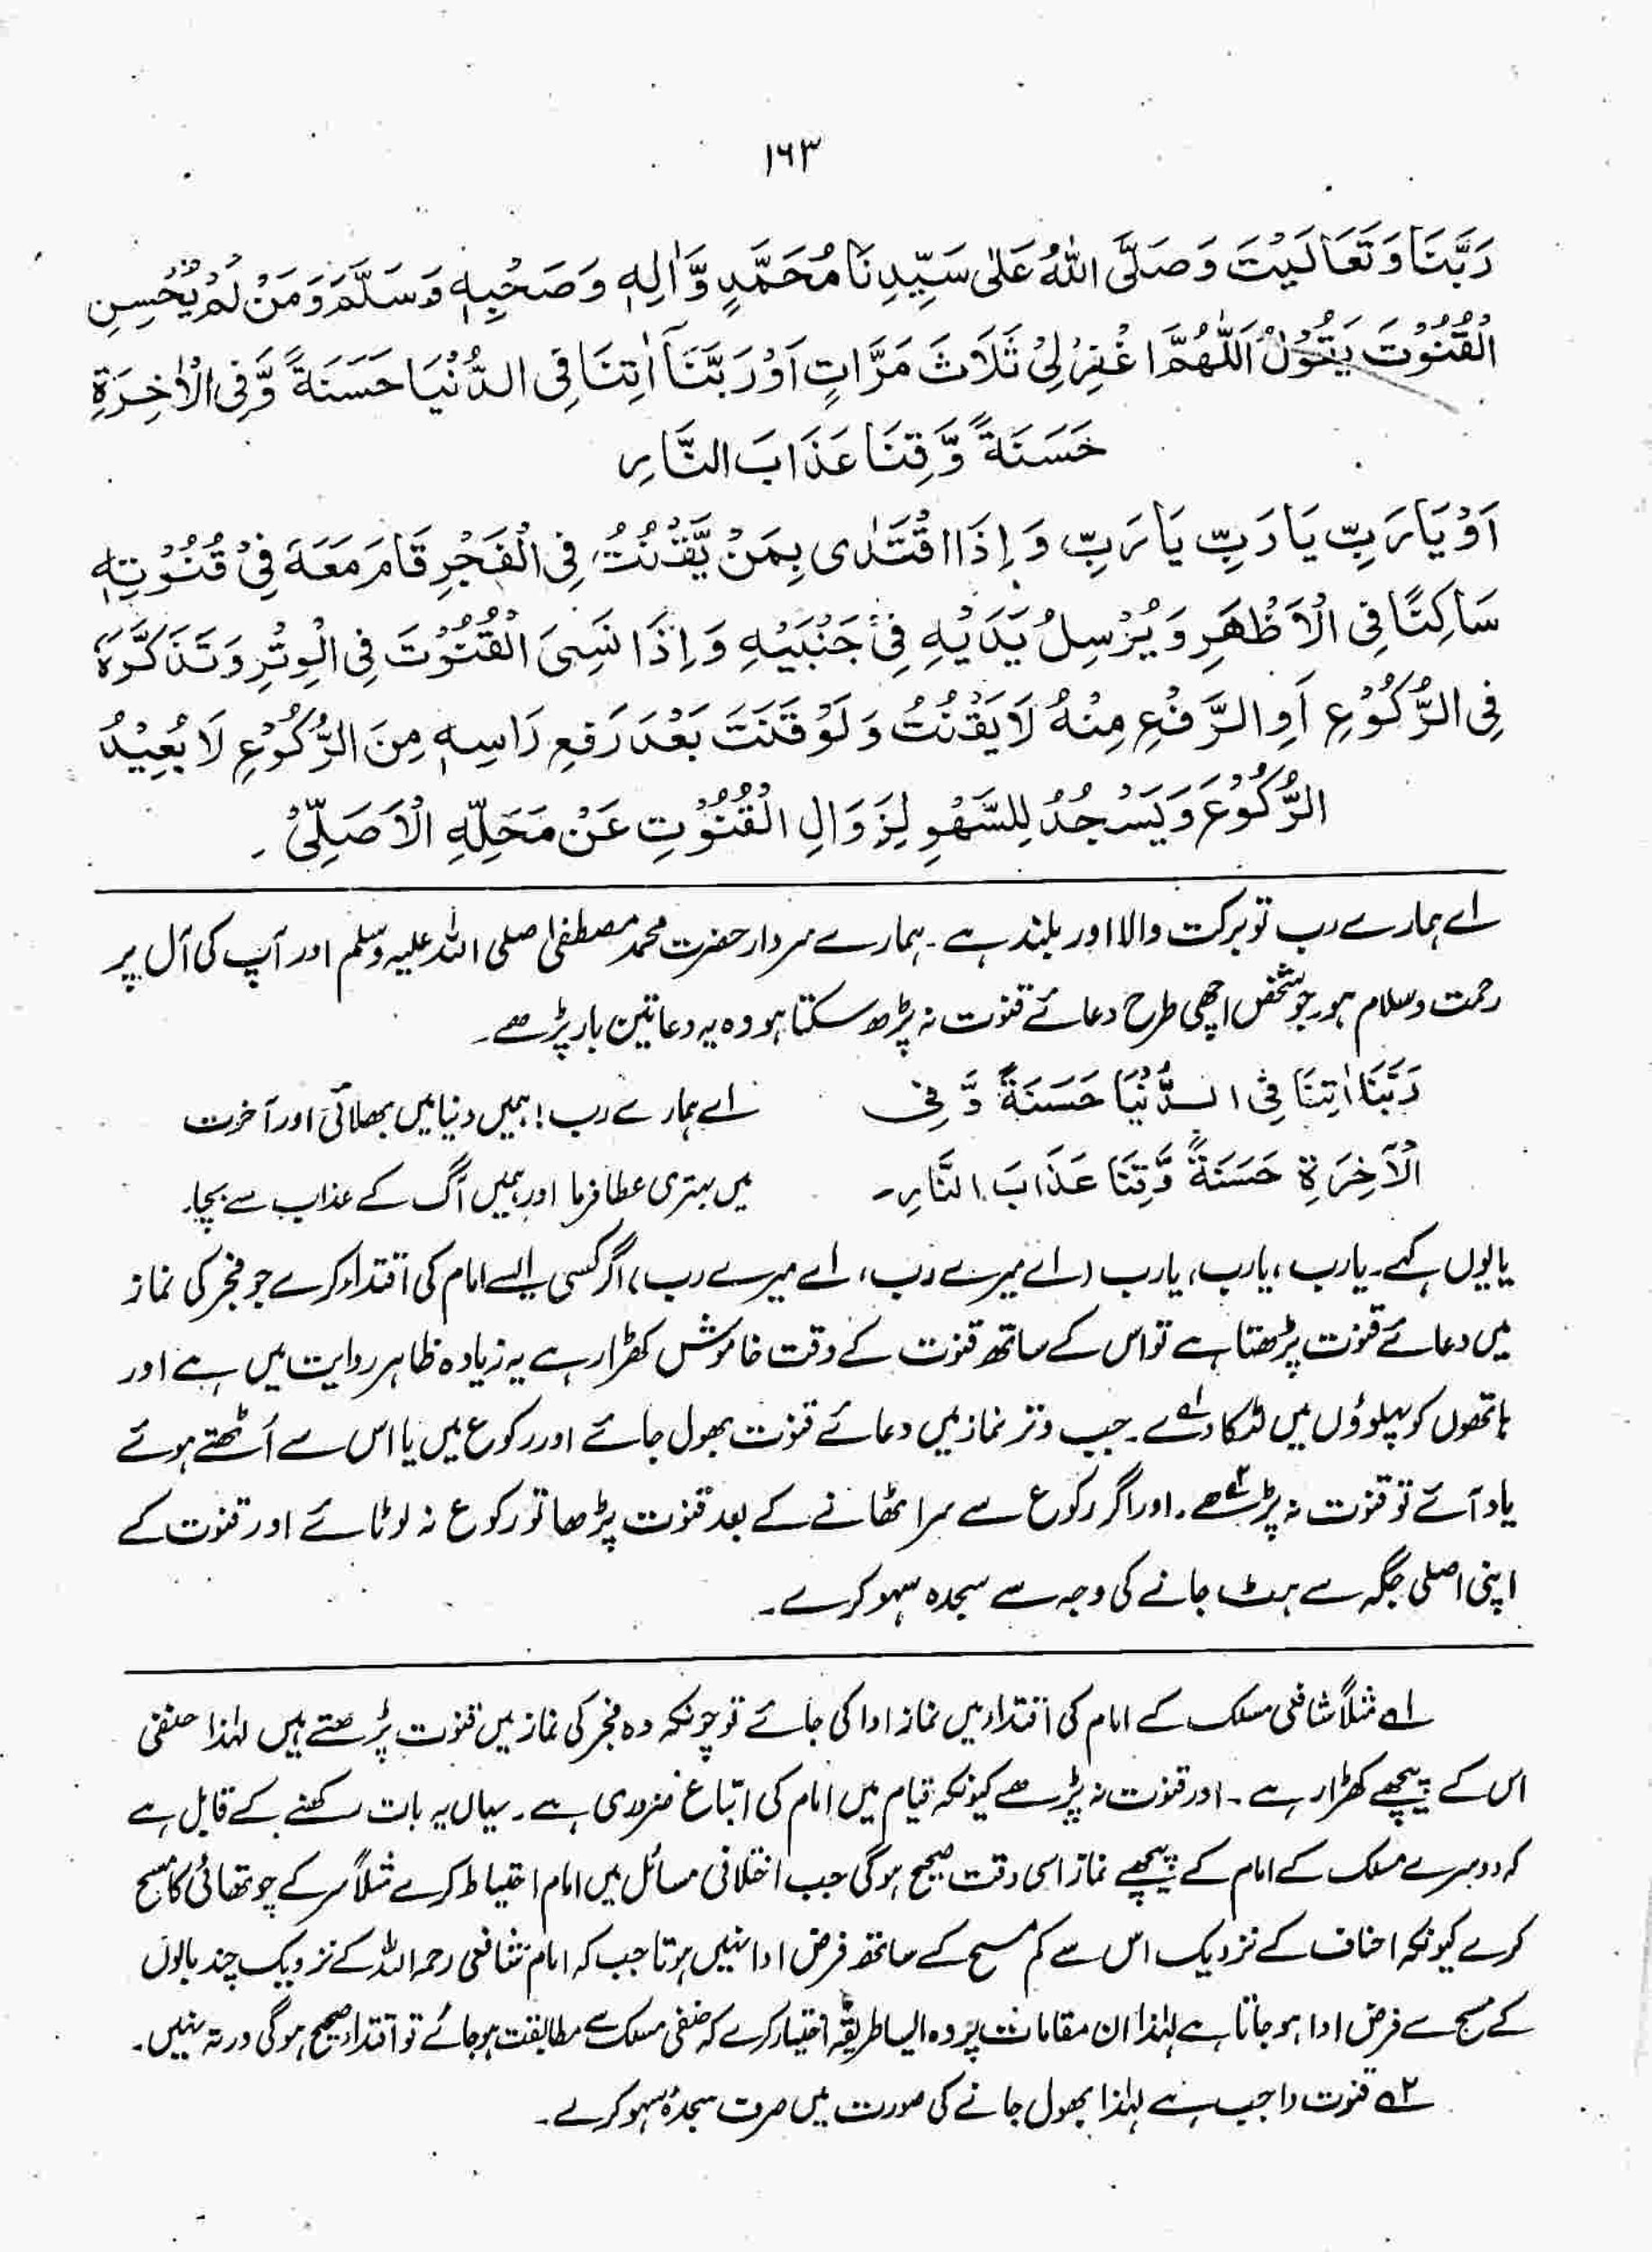 ۱۶۳
رَبَّنَا وَتَعَالَيْتَ وَصَلَّى اللّٰهُ عَلٰى سَيِّدِنَا مُحَمَّدٍ وَّاٰلِهٖ وَصَحْبِهٖ وَسَلَّمَ وَمَنْ لَمْ يُحْسِنِ
الْقُنُوْتَ يَقُوْلُ اَللّٰهُمَّ اغْفِرْ لِيْ ثَلَاثَ مَرَّاتٍ اَوْ رَبَّنَآ اٰتِنَا فِى الدُّنْيَا حَسَنَةً وَّفِى الْاٰخِرَةِ
حَسَنَةً وَّقِنَا عَذَابَ النَّارِ
اَوْ يَارَبِّ يَارَبِّ يَارَبِّ وَاِذَا اقْتَدٰى بِمَنْ يَّقْنُتُ فِى الْفَجْرِ قَامَ مَعَهٗ فِيْ قُنُوْتِهٖ
سَاكِتًا فِى الْاَظْهَرِ وَيُرْسِلُ يَدَيْهِ فِيْ جَنْبَيْهِ وَاِذَا نَسِىَ الْقُنُوْتَ فِى الْوِتْرِ وَتَذَكَّرَهٗ
فِى الرُّكُوْعِ اَوِ الرَّفْعِ مِنْهُ لَا يَقْنُتُ وَلَوْ قَنَتَ بَعْدَ رَفْعِ رَاسِهٖ مِنَ الرُّكُوْعِ لَا يُعِيْدُ
الرُّكُوْعَ وَيَسْجُدُ لِلسَّهْوِ لِزَوَالِ الْقُنُوْتِ عَنْ مَحَلِّهِ الْاَصَلِيِّ۔
اے ہمارے رب تو برکت والا اور بلند ہے۔ ہمارے سردار حضرت محمد مصطفیٰ صلی اللہ علیہ وسلم اور آپ کی آل پر
رحمت وسلام ہو۔ جو شخص اچھی طرح دعائے قنوت نہ پڑھ سکتا ہو وہ یہ دعا تین بار پڑھے۔
رَبَّنَا اٰتِنَا فِى الدُّنْيَا حَسَنَةً وَّفِى اے ہمارے رب! ہمیں دنیا میں بھلائی اور آخرت
الْاٰخِرَةِ حَسَنَةً وَّقِنَا عَذَابَ النَّارِ۔ میں بہتری عطا فرما اور ہمیں آگ کے عذاب سے بچا۔
یا یوں کہے۔ یارب، یارب، یارب (اے میرے رب، اے میرے رب)، اگر کسی ایسے امام کی اقتداء کرے جو فجر کی نماز
میں دعائے قنوت پڑھتا ہے تو اس کے ساتھ قنوت کے وقت خاموش کھڑا رہے یہ زیادہ ظاہر روایت میں ہے اور
ہاتھوں کو پہلوؤں میں لٹکا دے۱؎۔ جب وتر نماز میں دعائے قنوت بھول جائے اور رکوع میں یا اس سے اُٹھتے ہوئے
یاد آئے تو قنوت نہ پڑھے۲؎۔ اور اگر رکوع سے سر اٹھانے کے بعد قنوت پڑھا تو رکوع نہ لوٹائے اور قنوت کے
اپنی اصلی جگہ سے ہٹ جانے کی وجہ سے سجدہ سہو کرے۔
۱؎ مثلاً شافعی مسلک کے امام کی اقتداء میں نماز ادا کی جائے تو چونکہ وہ فجر کی نماز میں قنوت پڑھتے ہیں لہٰذا حنفی
اس کے پیچھے کھڑا رہے۔ اور قنوت نہ پڑھے کیونکہ قیام میں امام کی اتباع ضروری ہے۔ یہاں یہ بات رکھنے کے قابل ہے
کہ دوسرے مسلک کے امام کے پیچھے نماز اسی وقت صحیح ہوگی جب اختلافی مسائل میں امام احتیاط کرے مثلاً سر کے چوتھائی کا مسح
کرے کیونکہ احناف کے نزدیک اس سے کم مسح کے ساتھ فرض ادا نہیں ہوتا جب کہ امام شافعی رحمہ اللہ کے نزدیک چند بالوں
کے مسح سے فرض ادا ہو جاتا ہے لہٰذا ان مقامات پر وہ ایسا طریقہ اختیار کرے کہ حنفی مسلک سے مطابقت ہو جائے تو اقتداء صحیح ہوگی ورنہ نہیں۔
۲؎ قنوت واجب ہے لہٰذا بھول جانے کی صورت میں صرف سجدۂ سہو کرے۔